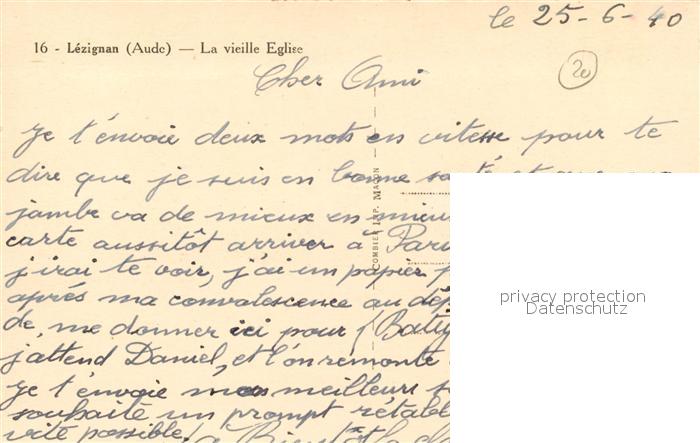 le 25-6-40
16 - Lézignan (Aude) — La vieille Eglise
20
Cher Ami
Je t'envoie deux mots en vitesse pour te
dire que je suis en bonne santé et que
jambe va de mieux en mieu
carte aussitôt arriver à Pari
j'irai te voir, j'ai un papier p
après ma convalescence au dép
de, me donner ici pour
j'attend Daniel, et l'on remonte
Je t'envoie mes meilleurs s
souhaite un prompt rétabl
vite possible! a Bientôt
COMBIER IMP. MACON
privacy protection
Datenschutz